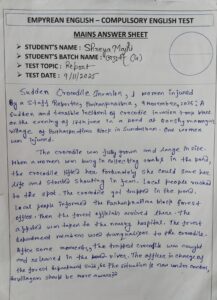 EMPYREAN ENGLISH – COMPULSORY ENGLISH TEST
MAINS ANSWER SHEET
➤ STUDENT'S NAME: Shreya Maiti
➤ STUDENT'S BATCH NAME:
➤ TEST TOPIC: Report
➤ TEST DATE: 9/11/2025
Sudden Crocodile Invasion, 1 women injured
By a Staff Reporter, Patharpratima, 9 November, 2025: A
Sudden and terrible incident of crocodile invasion took place
on the evening of in a pond at
village, of Patharpratima Block in Sundarban. One women
was injured.
The crocodile was fully grown and large in size.
When a women was busy in collecting crabs in the pond,
the crocodile bited her. Fortunately she could save her
life and started shouting in fear. Local people rushed
to the spot. The crocodile got trapped in the pond.
Local people informed the Patharpratima block forest
office. Then the forest officials arrived there. The
affected was taken to the nearby hospital. The forest
department members used tranquilizer to the crocodile.
After some moments, the trapped crocodile was caught
and released in the river. The officer in charge of
the forest department said, the situation is now under control,
the villagers should be more aware.